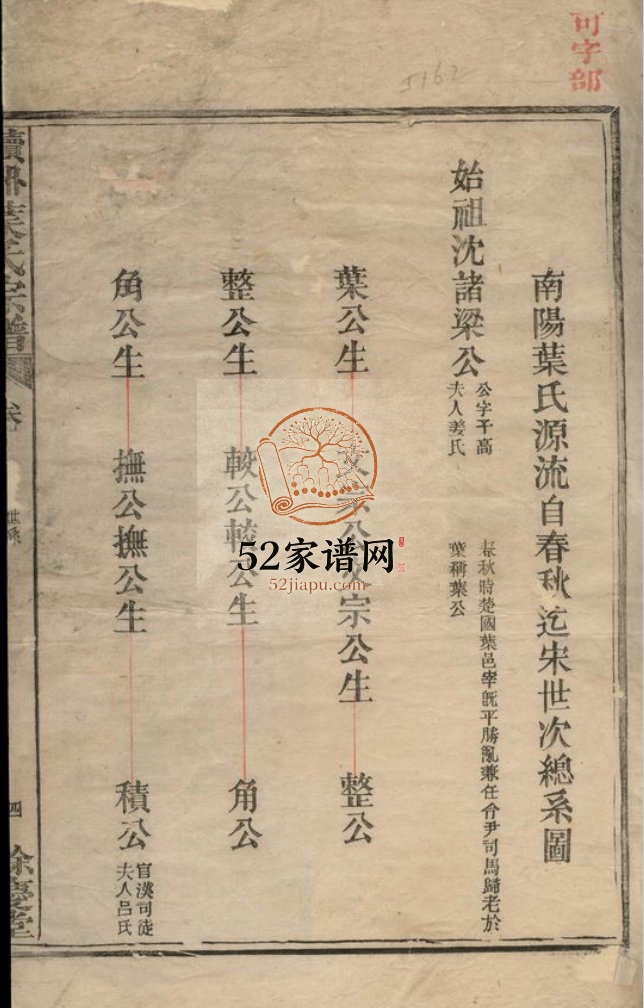 可字部
5162
南陽葉氏源流自春秋迄宋世次總系圖
始祖沈諸梁公
公字子高
夫人姜氏
春秋時楚國葉邑宰旣平勝亂兼任令尹司馬歸老於
葉稱葉公
葉公生
宗公生
整公
整公生
較公較公生
角公
角公生
撫公撫公生
積公
官漢司徒
夫人呂氏
葉氏宗譜
卷
世系
四
餘慶堂
52家谱网
52jiapu.com